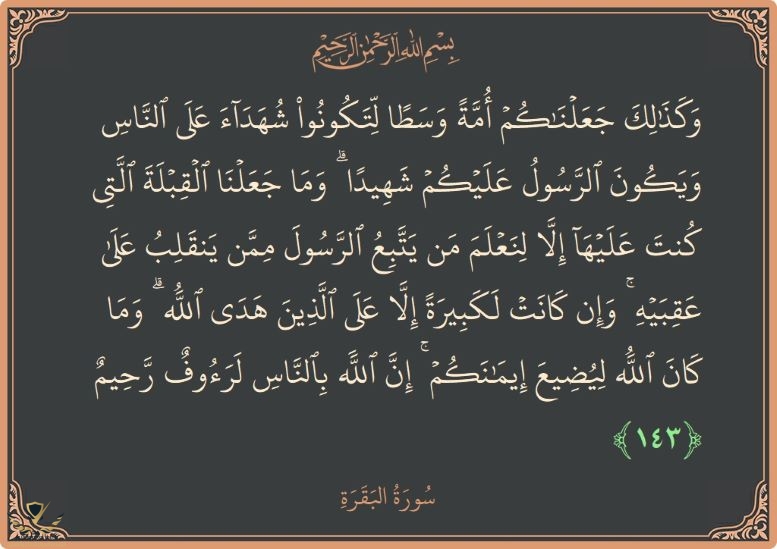 بِسْمِ اللَّهِ الرَّحْمَٰنِ الرَّحِيمِ
وَكَذَٰلِكَ جَعَلْنَٰكُمْ أُمَّةً وَسَطًا لِّتَكُونُوا۟ شُهَدَآءَ عَلَى ٱلنَّاسِ
وَيَكُونَ ٱلرَّسُولُ عَلَيْكُمْ شَهِيدًا ۗ وَمَا جَعَلْنَا ٱلْقِبْلَةَ ٱلَّتِى
كُنتَ عَلَيْهَآ إِلَّا لِنَعْلَمَ مَن يَتَّبِعُ ٱلرَّسُولَ مِمَّن يَنقَلِبُ عَلَىٰ
عَقِبَيْهِ ۚ وَإِن كَانَتْ لَكَبِيرَةً إِلَّا عَلَى ٱلَّذِينَ هَدَى ٱللَّهُ ۗ وَمَا
كَانَ ٱللَّهُ لِيُضِيعَ إِيمَٰنَكُمْ ۚ إِنَّ ٱللَّهَ بِٱلنَّاسِ لَرَءُوفٌ رَّحِيمٌ
﴿١٤٣﴾
سُورَةُ البَقَرَةِ